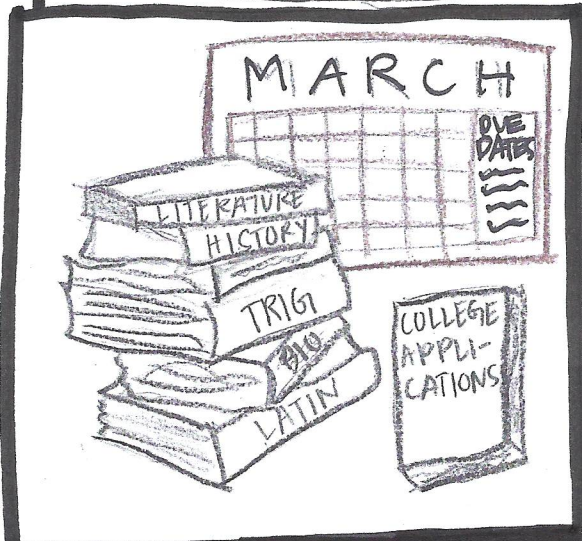 MARCH
DUE
DATES
LITERATURE
HISTORY
TRIG
BIO
LATIN
COLLEGE
APPLI-
CATIONS